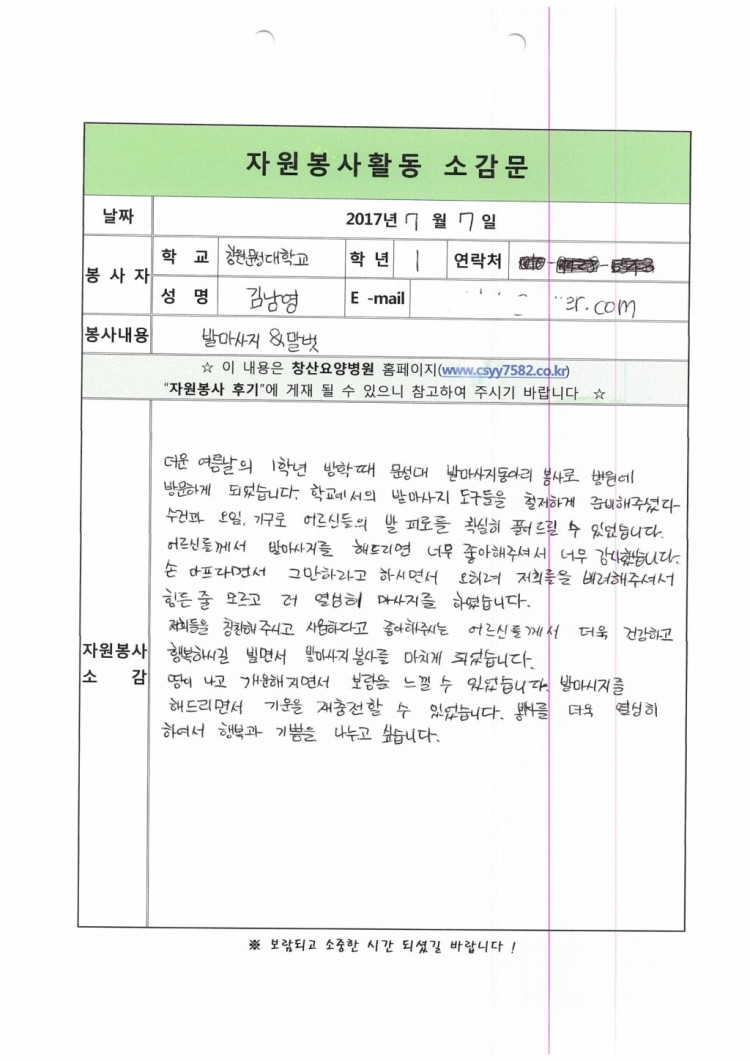 자원봉사활동 소감문
날짜 2017년 7 월 7 일
봉사자 학 교 창원문성대학교 학년 1 연락처
성 명 김남영 E -mail er.com
봉사내용 발마사지 & 말벗
☆ 이 내용은 창산요양병원 홈페이지(www.csyy7582.co.kr)
“자원봉사 후기”에 게재 될 수 있으니 참고하여 주시기 바랍니다 ☆
자원봉사
소 감
더운 여름날의 1학년 방학때 문성대 발마사지동아리 봉사로 병원에
방문하게 되었습니다. 학교에서의 발마사지 도구들을 철저하게 준비해주셨다
수건과 오일, 기구로 어르신들의 발 피로를 확실히 풀어드릴 수 있었습니다.
어르신들께서 발마사지를 해드리면 너무 좋아해주셔서 너무 감사했습니다.
손 아프라면서 그만하라고 하시면서 오히려 저희들을 배려해주셔서
힘든 줄 모르고 더 열심히 마사지를 하였습니다.
저희들을 칭찬해주시고 시원하다고 좋아해주시는 어르신들께서 더욱 건강하고
행복하시길 빌면서 발마사지봉사를 마치게 되었습니다.
땀이 나고 개운해지면서 보람을 느낄 수 있었습니다. 발마사지를
해드리면서 기운을 재충전할 수 있었습니다. 봉사를 더욱 열심히
하여서 행복과 기쁨을 나누고 싶습니다.
※ 보람되고 소중한 시간 되셨길 바랍니다 !